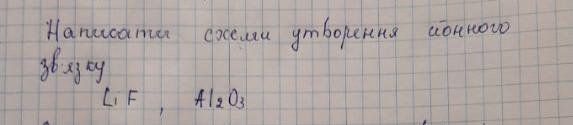 Написати схеми утворення йонного
зв'язку
LiF, Al2O3